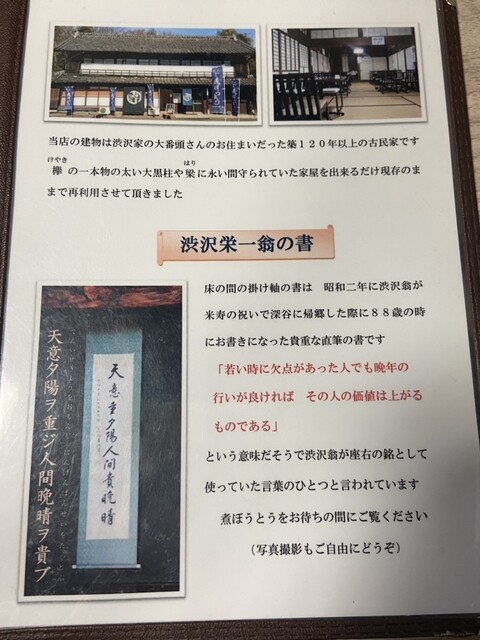 当店の建物は渋沢家の大番頭さんのお住まいだった築１２０年以上の古民家です
けやき はり
欅の一本物の太い大黒柱や梁に永い間守られていた家屋を出来るだけ現存のま
まで再利用させて頂きました
渋沢栄一翁の書
床の間の掛け軸の書は 昭和二年に渋沢翁が
米寿の祝いで深谷に帰郷した際に８８歳の時
にお書きになった貴重な直筆の書です
「若い時に欠点があった人でも晩年の
行いが良ければ その人の価値は上がる
ものである」
という意味だそうで渋沢翁が座右の銘として
使っていた言葉のひとつと言われています
煮ぼうとうをお待ちの間にご覧ください
（写真撮影もご自由にどうぞ）
天意夕陽ヲ重ジ人間晩晴ヲ貴ブ
天意重夕陽人間貴晩晴